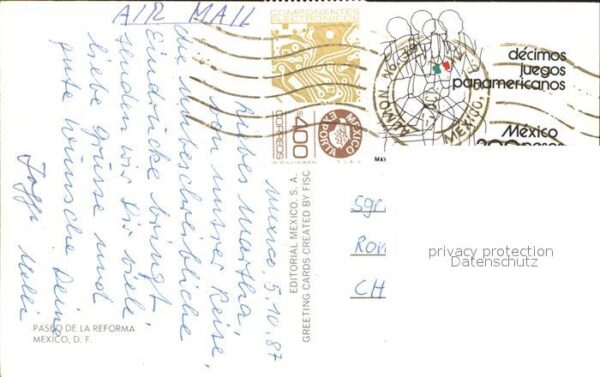 AIR MAIL
Mexico, 5.10.87
Liebes Martha,
von unsrer Reise,
die unbeschreibliche
Eindrücke bringt
senden wir Dir viele
liebe Grüsse und
gute Wünsche Deine
PASEO DE LA REFORMA
MEXICO, D. F.
EDITORIAL MEXICO, S. A.
GREETING CARDS CREATED BY FISC
COMPONENTES
ELECTRONICOS
CORREOS
400
MEXICO
EXPORTA
décimos
juegos
panamericanos
México
MEXICO,
MAY
Sgr
CH
privacy protection
Datenschutz